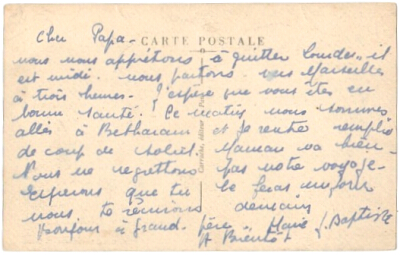 Cher Papa -
CARTE POSTALE
nous nous apprêtons à quitter Lourdes, il
est midi. nous partons vers Marseille
à trois heures. J'espère que vous êtes en
bonne santé. Ce matin nous sommes
allés à Betharam et je rentre remplie
de coup de soleil. Maman va bien
Nous ne regrettons pas notre voyage.
Espérons que tu le feras un jour
nous te réunions demain
Bonjour à Grand-père, Marie J. Baptiste
A Bientôt